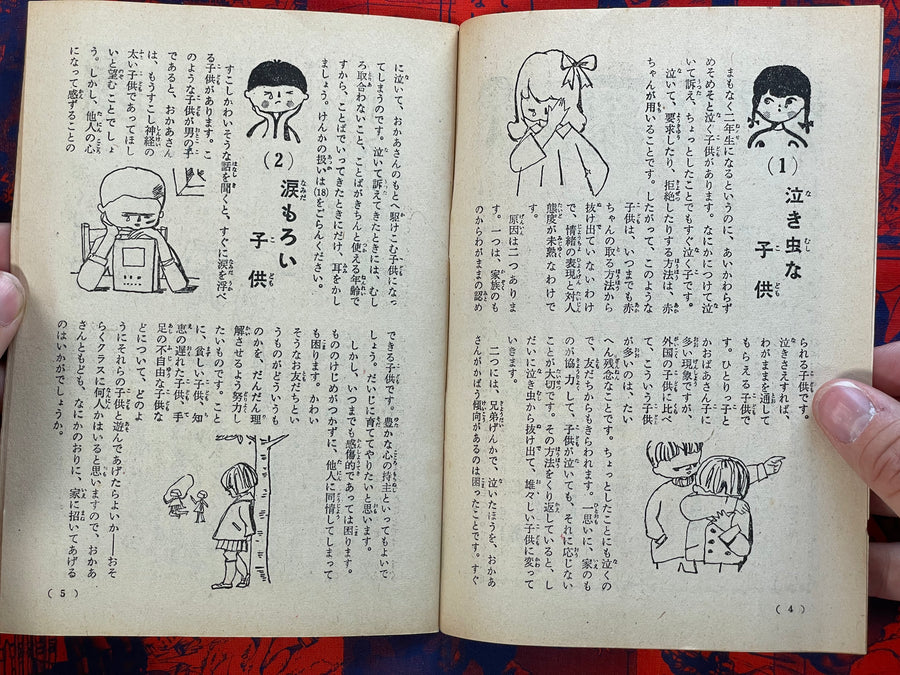 (1)
泣き虫な
子供
まもなく二年生になるというのに、あいかわらず
めそめそと泣く子供があります。なにかにつけて泣
いて訴え、ちょっとしたことでもすぐ泣く子です。
泣いて、要求したり、拒絶したりする方法は、赤
ちゃんが用いることです。したがって、このような
子供は、いつまでも赤
ちゃんの取る方法から
抜け出ていないわけ
で、情緒の表現と対人
態度が未熟なわけで
す。
原因は二つありま
す。一つは、家族のも
のからわがままの認め
られる子供です。
泣きさえすれば、
わがままを通して
もらえる子供で
す。ひとりっ子と
かおばあさん子に
多い現象ですが、
外国の子供に比べ
て、こういう子供
が多いのは、たい
へん残念なことです。ちょっとしたことにも泣くの
で、友だちからもきらわれます。一思いに、家のも
のが協力して、子供が泣いても、それに応じない
ことが大切です。その方法をくり返していると、し
だいに泣き虫から抜け出て、雄々しい子供に変って
いきます。
二つには、兄弟げんかで、泣いたほうを、おかあ
さんがかばう傾向があるのは困ったことです。すぐ
(4)
に泣いて、おかあさんのもとへ駆けこむ子供になっ
てしまうのです。泣いて訴えてきたときには、むし
ろ取合わないこと、ことばがきちんと使える年齢で
すから、ことばでいってきたときにだけ、耳をかし
ましょう。けんかの扱いは(18)をごらんください。
(2)
涙もろい
子供
すこしかわいそうな話を聞くと、すぐに涙を浮べ
る子供があります。こ
のような子供が男の子
であると、おかあさん
は、もうすこし神経の
太い子供であってほし
いと望むことでしょ
う。しかし、他人の心
になって感ずることの
できる子供です。豊かな心の持主といってもよいで
しょう。だいじに育ててやりたいと思います。
しかし、いつまでも感傷的であっては困ります。
もののけじめがつかずに、他人に同情してしまって
も困ります。かわい
そうなお友だちとい
うものがどういうも
のかを、だんだん理
解させるよう努力し
たいものです。こと
に、貧しい子供、知
恵の遅れた子供、手
足の不自由な子供な
どについて、どのよ
うにそれらの子供と遊んであげたらよいか――おそ
らくクラスに何人かはいると思いますので、おかあ
さんともども、なにかのおりに、家に招いてあげる
のはいかがでしょうか。
(5)